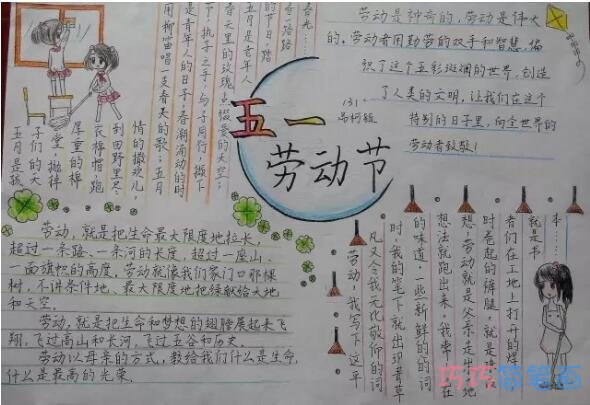 五一
劳动节
(3).
劳动是神奇的,劳动是伟大
的。劳动者用勤劳的双手和智慧,编
织了这个五彩斑斓的世界,创造
了人类的文明,让我们在这个
特别的日子里,向全世界的
劳动者致敬!
五月是老年人
的节日。踏
春天里的玫瑰点缀爱的天空;
执子之手,与子同行,撒下
是青年人的日子。春潮涌动的时
用柳笛唱一支春天的歌;五月
情的撒欢儿,
到田野里尽
衣棒帽,跑
厚重的棉
堂,抛掉
子们的天
五月是孩
劳动,就是把生命最大限度地拉长,
超过一条路、一条河的长度,超过一座山、
一面旗帜的高度,劳动就像我们家门口那棵
树,不讲条件地、最大限度地把绿献给大地
和天空。
劳动,就是把生命和梦想的翅膀展起来飞
翔,飞过高山和长河,飞过五谷和历史。
劳动以母亲的方式,教给我们什么是生命,
什么是最高的光荣。
本……
就是书
者们在工地上打开的焊
时卷起的裤腿,就是建设
想,劳动就是父亲走出地
想法就跑出来,我常常在
的味道,一些新鲜的的词
时,我的笔下就出现青草
凡又令我无化敬仰的词
劳动,我写下这平
巧巧简笔画